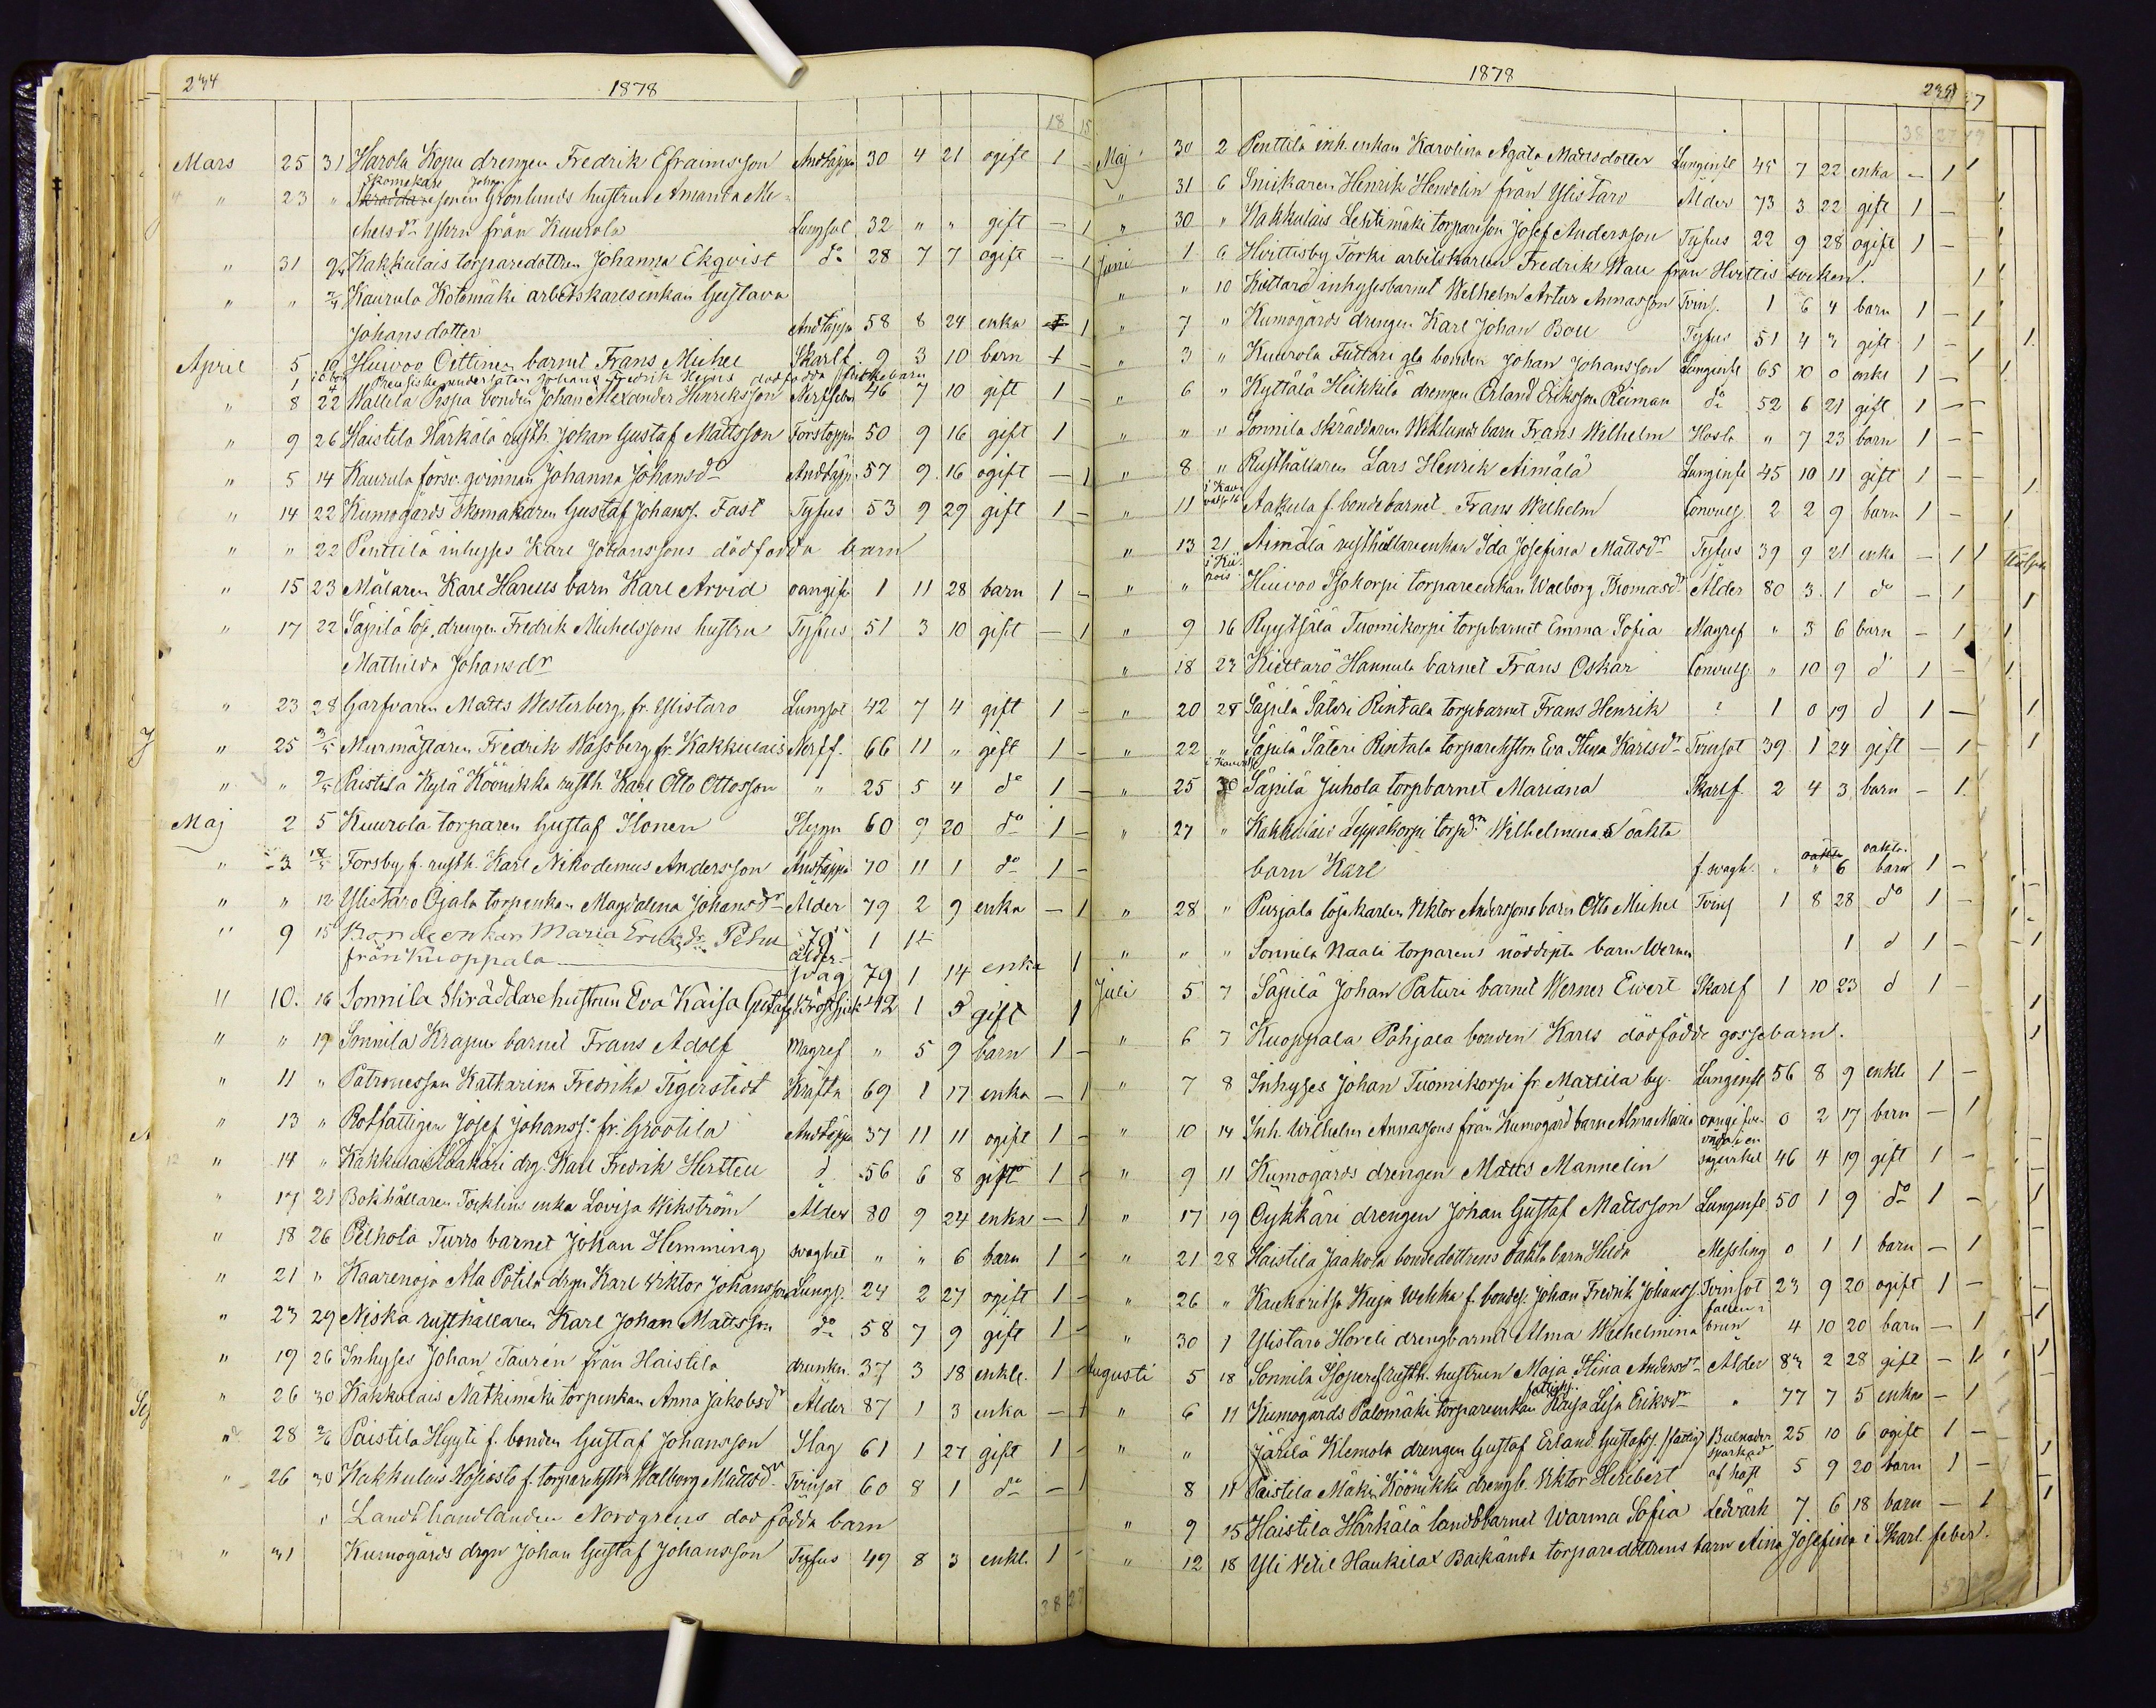 234
1878
18 15
Mars 25 31 Harola Kopu drengen Fredrik Efraimsson Andtäppa 30 4 21 ogift 1 -
" 23 " Skomakare Johan
Skräddaresonen Grönlunds hustru Amanda Mi-
chelsdr Yhrn från Kuurola Lungsot 32 " " gift - 1
" 31 9/4 Kakkulais torparedottren Johanna Ekqvist do 28 7 7 ogift - 1
" " 7/4 Kaurula Kotomäki arbetskarlsenkan Gustava
Johansdotter Andtäppa 58 8 24 enka 1
April 5 10 Huwoo Oettinen barnet Frans Michel Skarlf. 9 3 10 barn 1
1 Preussiske undersåten Johans Fredrik Heyns dödfödda barn
" 8 22 Wallila Pispa bonden Johan Alexander Henriksson Nerffeber 46 7 10 gift 1
" 9 26 Haistila Härkälä rusth. Johan Gustaf Mattsson Förstoppn 50 9 16 gift 1
" 5 14 Kaurula försv. qvinnan Johanna Johansdr Andtäpp. 57 9 16 ogift - 1
" 14 22 Kumogårds Skomakaren Gustaf Johanss. Fast Tyfus 53 9 29 gift 1 -
" " 22 Penttilä inhyses Karl Johanssons dödfödda barn
" 15 23 Målaren Karl Harells barn Karl Arvid oangifv 1 11 28 barn 1 -
" 17 22 Säpilä lös. drengen Fredrik Michelssons hustru Tyfus 51 3 10 gift - 1
Mathilda Johansdr
" 23 28 Garfvaren Matts Westerberg, fr. Ylistaro Lungsot 42 7 4 gift 1 -
" 25 3/5 Murmästaren Fredrik Wassberg fr. Kakkulais Nerff. 66 11 " gift 1 -
" " 2/5 Paistila Kylä Köönikkä rusth. Karl Otto Ottosson " 25 5 4 do 1 -
Maj 2 5 Kuurola torparen Gustaf Ilonen Flygn 60 9 20 do 1 -
" 3 12/5 Forsby f. rusth. Karl Nikodemus Andersson Andtäppa 70 11 1 do 1 -
" " 12 Ylistaro Ojala torpenkan Magdalena Johansdr Ålder 79 2 9 enka - 1
" 9 15 Bondeenkan Maria Eriksdr Pelm 79 1 14
från Kuoppala ålder- svag 79 1 14 enka 1
" 10. 16 Sonnila Skräddarehustrun Eva Kaisa Gustafs Bröstsjuk 42 1 5 gift 1
" " 19 Sonnila Krapu barnet Frans Adolf Magref " 5 9 barn 1 -
" 11 " Patronessan Katharina Fredrika Tigerstedt Kräfta 69 1 17 enka - 1
" 13 " Rotfattigen Josef Johanss. fr. Grootila Andtäppa 37 11 11 ogift 1 -
" 14 " Kakkulais drg. Karl Fredrik Herttell d 56 6 8 gift 1 -
" 17 21 Bokhållaren Tocklins enka Lovisa Wikström Ålder 80 9 24 enka - 1
" 18 26 Pelkola Turro barnet Johan Hemming svaghet " " 6 barn 1 -
" 21 " Kaarenoja Ala Potila drgn Karl Viktor Johansson Lungs. 24 2 27 ogift 1 -
" 23 29 Niska rusthållaren Karl Johan Mattsson do 58 7 9 gift 1 -
" 19 26 Inhyses Johan Taurén från Haistila drunkn. 37 3 18 enkl. 1 -
" 26 30 Kakkulais Mätkimäki torpenkan Anna Jakobsdr Ålder 87 1 3 enka - 1
" 28 2/6 Paistila Hyyti f. bonden Gustaf Johansson Slag 61 1 27 gift 1 -
" 26 30 Kakkulais f. torparehstn Walborg Mattsdr Tvinsot 60 8 1 do - 1
" Landthandlanden Nordgréns dödfödda barn
" 31 Kumogårds drgn Johan Gustaf Johansson Tyfus 49 8 3 enkl. 1 -
38 27
1878
235
38 27
Maj 30 2 Penttilä inh. enkan Karolina Agata Mattsdotter Lunginfl 45 7 22 enka - 1
" 31 6 Snickaren Henrik Hendolin från Ylistaro Ålder 73 3 22 gift 1 -
" 30 " Kakkulais Lehtimäki torpareson Josef Andersson Tyfus 22 9 28 ogift 1 -
Juni 1 6 Hvittisby Torki arbetskarlen Fredrik Wall från Hvittis socken.
" " 10 Kiettarö inhysesbarnet Wilhelm Artur Annasson Tvins. 1 6 4 barn 1 -
" 7 " Kumogårds drengen Karl Johan Boll Tyfus 51 4 3 gift 1 -
" 3 " Kuurola Futtari gla bonden Johan Johansson Lunginfl 65 10 0 enkl 1 -
" 6 " Kyttälä Heikkilä drengen Erland Eriksson Reiman do 52 6 21 gift 1 -
" " " Sonnila skräddaren Weklunds barn Frans Wilhelm Hosta " 7 23 barn 1 -
" 8 " Rusthållaren Lars Henrik Aimälä Lunginfl 45 10 11 gift 1 -
" 11 Aakula f. bondebarnet Frans Wilhelm Convuls. 2 2 9 barn 1 -
" 13 21 Aimälä rusthållareenkan Ida Josefina Mattsdr Tyfus 39 9 21 enka - 1
" " Huwoo Isokorpi torpareenkan Walborg Thomasdr Ålder 80 3 1 do - 1
" 9 16 Ryytsälä Tuomikorpi torpbarnet Emma Sofia Magref " 3 6 barn - 1
" 18 23 Kiettarö Hannula barnet Frans Oskar Convuls. " 10 9 d 1 -
" 20 28 Säpilä Säteri Rintala torpbarnet Frans Henrik ? 1 0 19 d 1 -
" 22 " Säpilä Säteri Rintala torparehstn Eva Stina Karlsdr Tvinsot 39 1 24 gift - 1
" 25 30 Säpilä Juhola torpbarnet Mariana Skarlf. 2 4 3 barn - 1
" 27 " Kakkulais Leppäkorpi torpdn Wilhelminas oäkta
barn Karl f. svagh. " " 6 oäkta barn 1 -
" 28 " Purjala löskarlen Viktor Anderssons barn Otto Michel Tvins 1 8 28 do 1 -
" " " Sonnila Naali torparens nöddöpta barn Werner 1 d 1 -
Juli 5 7 Säpilä Johan Paturi barnet Werner Evert Skarlf 1 10 23 d 1 -
" 6 7 Kuoppala Pohjala bonden Karls dödfödde gossebarn.
" 7 8 Inhyses Johan Tuomikorpi fr. Mattila by. Lunginfl 56 8 9 enkl. 1 -
" 10 14 Inh. Wilhelm Annassons från Kumogård barn Alma Maria oangifven 0 2 17 barn - 1
" 9 11 Kumogårds drengen Matts Mannelin 46 4 19 gift 1 -
" 17 19 Öykkäri drengen Johan Gustaf Mattsson Lunginfl 50 1 9 do 1 -
" 21 28 Haistila Jaakola bondedottrens oäkta barn Hilda Messling 0 1 1 barn - 1
" 26 " Kaukaritsa Kuja Wehka f. bondes. Johan Fredrik Johanss. Tvinsot 23 9 20 ogift 1 -
" 30 1 Ylistaro Horeli drengbarnet Alma Wilhelmina fallen i brun 4 10 20 barn - 1
Augusti 5 18 Sonnila Isopere rusth. hustrun Maja Stina Andersdr Ålder 83 2 28 gift - 1
" 6 11 Kumogårds Palomäki torpareenkan fattighj. Kaisa Lisa Eriksdr " 77 7 5 enka - 1
" " Järilä Klemola drengen Gustaf Erland Gustafss. (fattig) 25 10 6 ogift 1 -
8 11 Paistila Mäki Köönikkä drengb. Viktor Heribert sparkad af häst 5 9 20 barn 1 -
" 9 15 Haistila Härkälä landtbarnet Warma Sofia Ledvärk 7 6 18 barn - 1
" 12 18 Yli Netil Haukila Backända torparedottrens barn Aina Josefina i Skarl. feber.